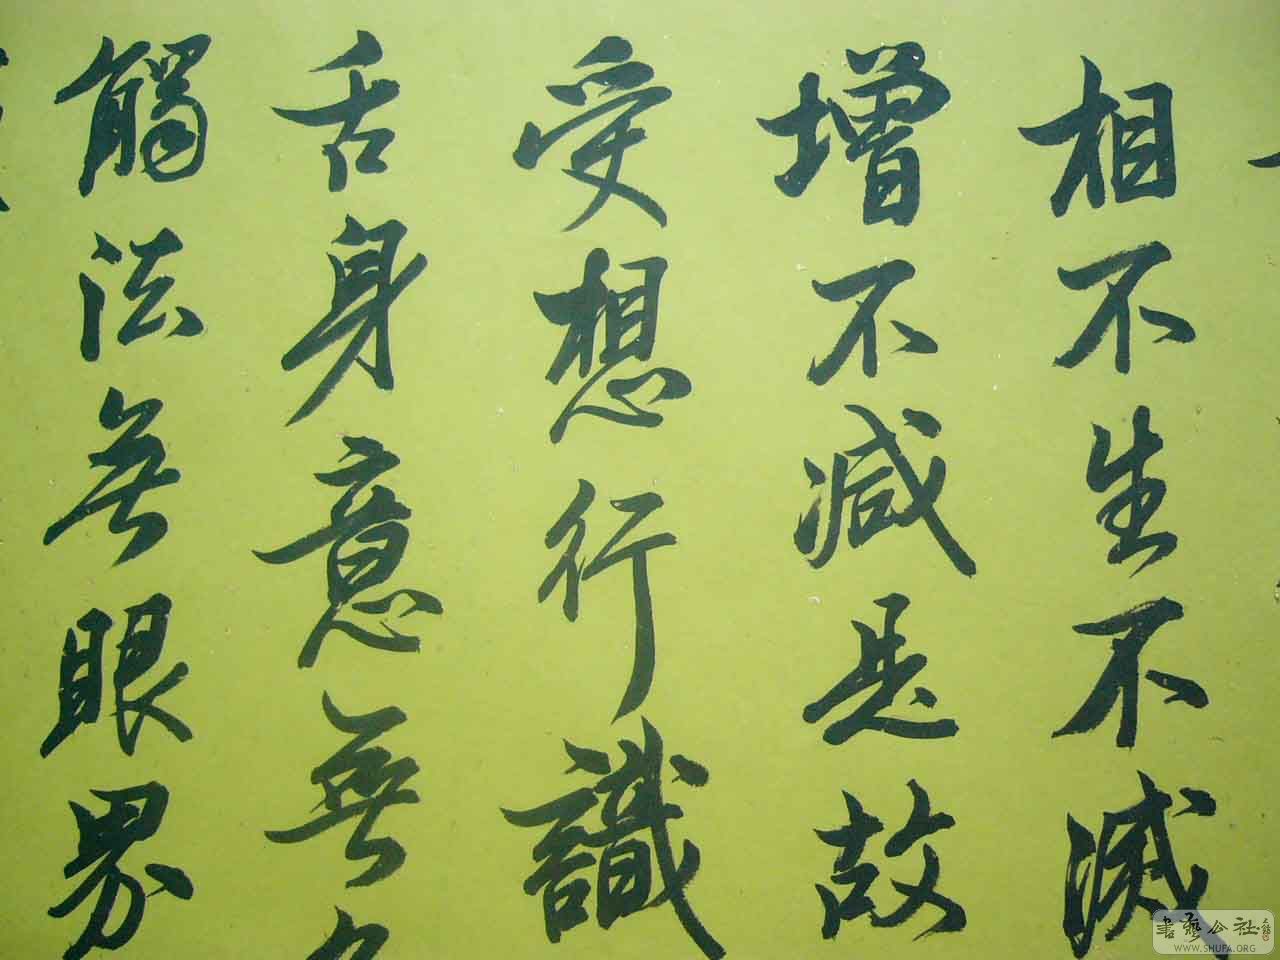 相不生不滅
增不減是故
受想行識
舌身意無
觸法無眼界
書藝公社
WWW.SHUFA.ORG